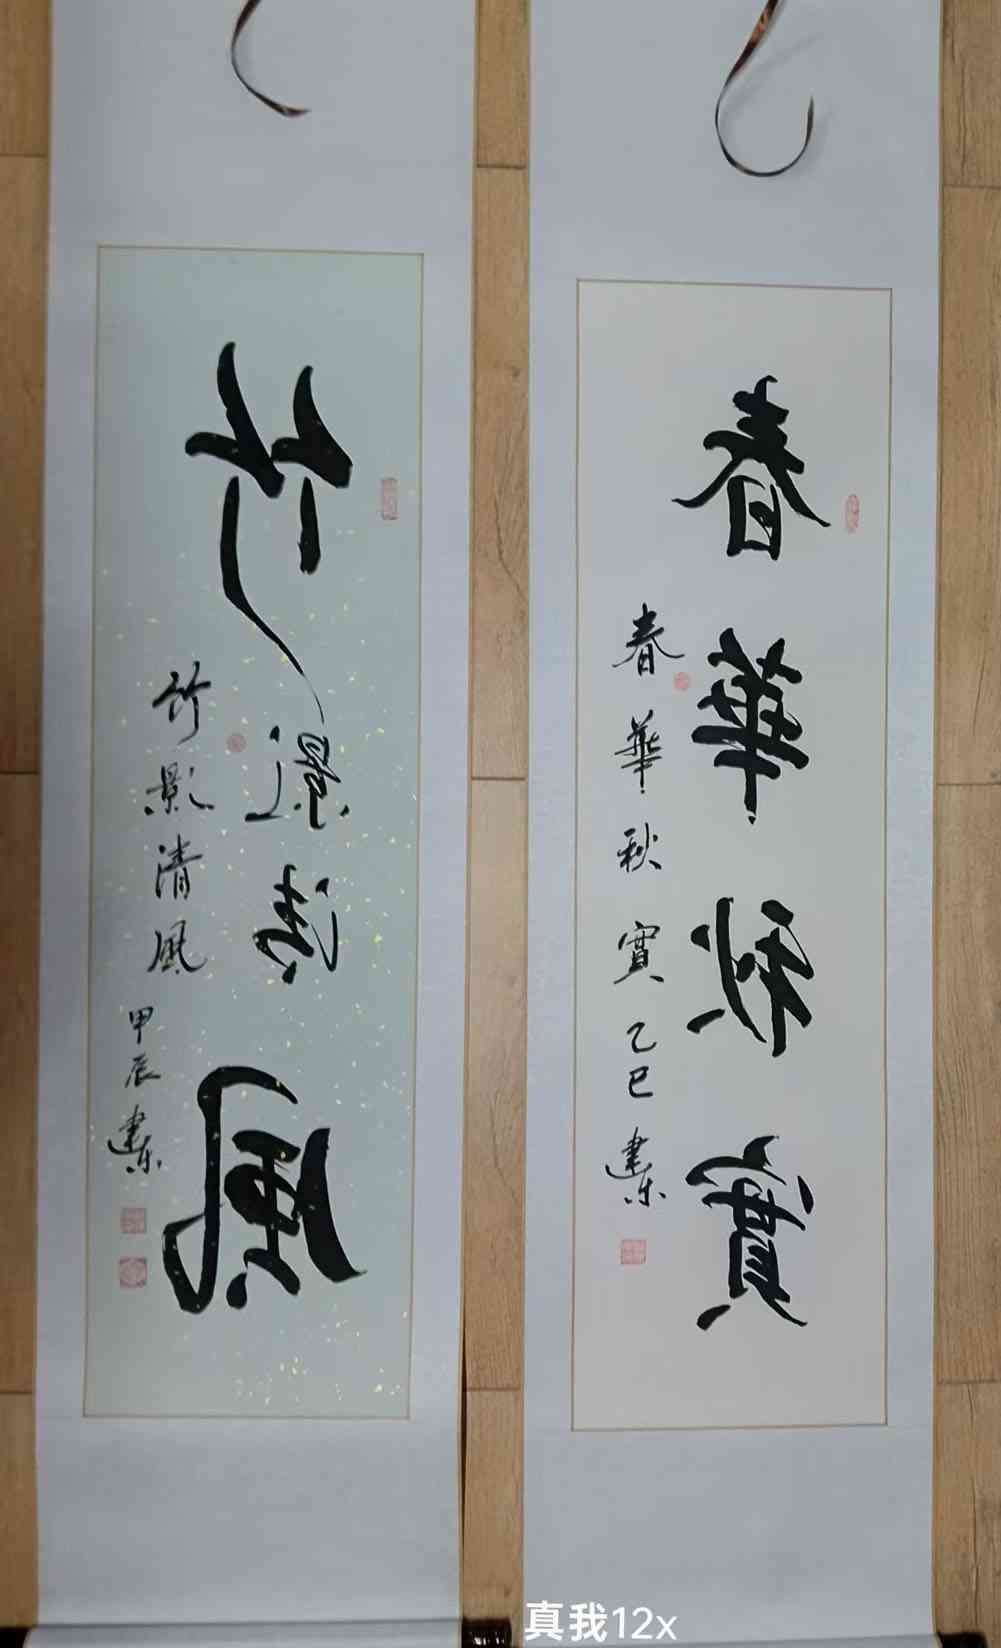 春華秋實
春華秋實 乙巳 建
竹影清風
竹影清風 甲辰 建
真我12x